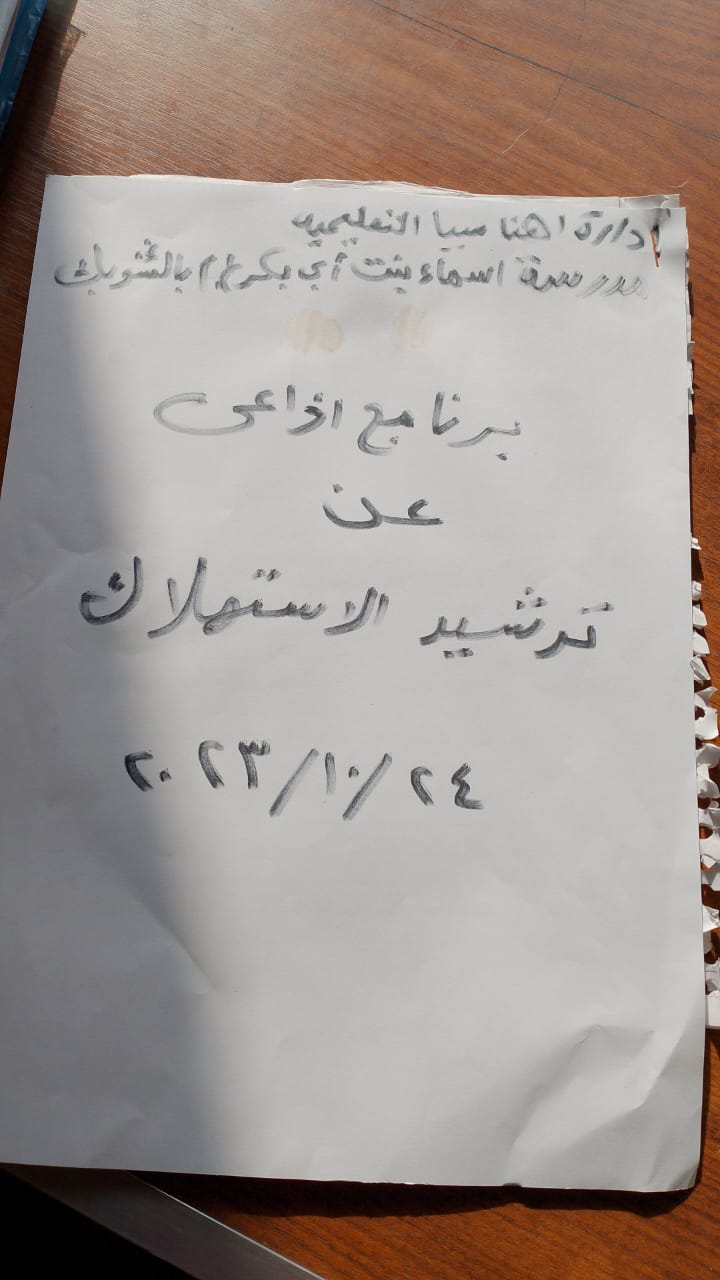 إدارة اهناسيا التعليميه
مدرسة اسماء بنت أبي بكر ع/م بالشوبك
برنامج اذاعى
عن
ترشيد الاستهلاك
٢٤/١٠/٢٠٢٣